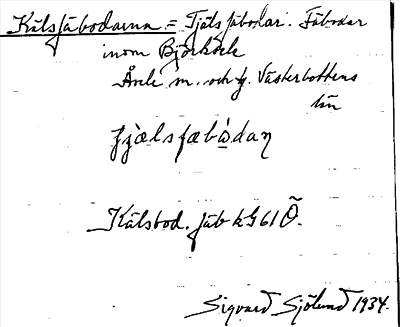 Kälsfäbodarna = Tjälsfäbodar. Fäbodar
inom Björksele
Åsele m. och tg. Västerbottens
län
Kälsbod. fäb kG 61 Ö.
Sigvard Sjölund 1934.